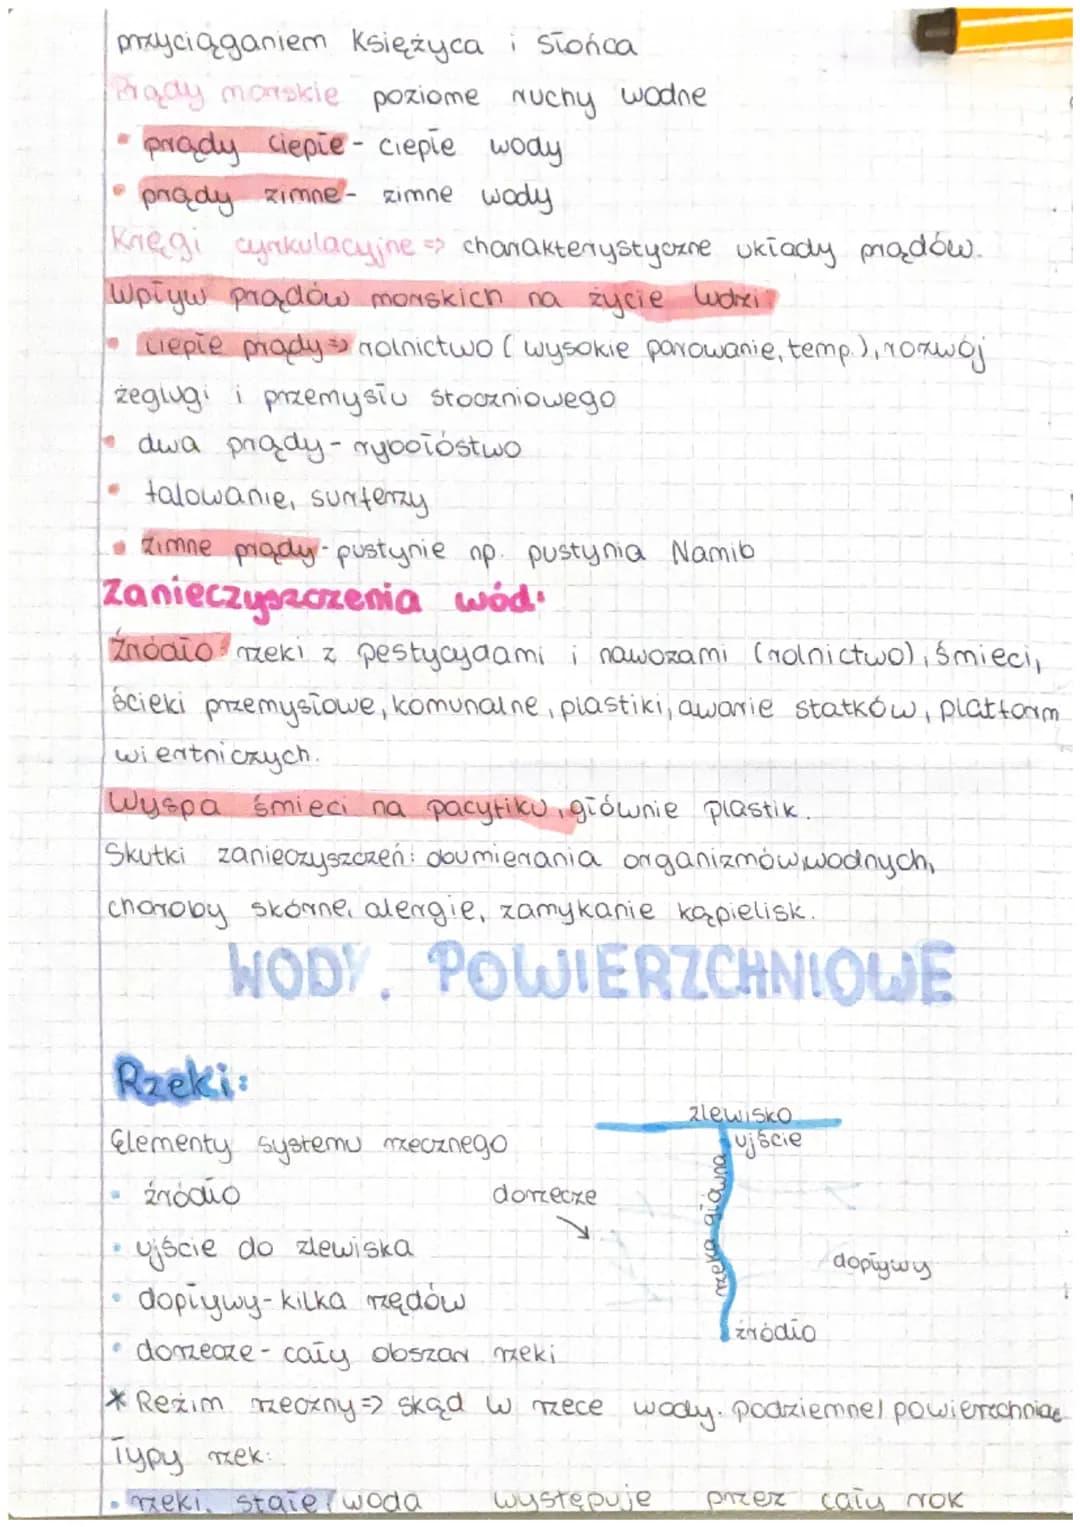 przyciąganiem Księżyca i Słońca
Prądy morskie poziome ruchy wodne
• prądy ciepłe - ciepłe wody
• prądy zimne - zimne wody
Kręgi cyrkulacyjne => charakterystyczne układy prądów.
Wpływ prądów morskich na życie ludzi:
• ciepłe prądy => rolnictwo (wysokie parowanie, temp.), rozwój
żeglugi i przemysłu stoczniowego
• dwa prądy - rybołóstwo
• falowanie, surferzy
• zimne prądy - pustynie np. pustynia Namib
Zanieczyszczenia wód:
Źródło: rzeki z pestycydami i nawozami (rolnictwo), śmieci,
ścieki przemysłowe, komunalne, plastiki, awarie statków, platform
wiertniczych.
Wyspa śmieci na pacyfiku, głównie plastik.
Skutki zanieczyszczeń: obumierania organizmów wodnych,
choroby skórne, alergie, zamykanie kąpielisk.
WODY. POWIERZCHNIOWE
Rzeki:
Elementy systemu rzecznego
• źródło
• ujście do zlewiska
• dopływy - kilka rzędów
• dorzecze - cały obszar rzeki
zlewisko
ujście
dorzecze
rzeka główna
dopływy
źródło
* Reżim rzeczny => skąd w rzece wody. podziemne/powierzchniae
Typy rzek:
• rzeki. stałe/woda występuje przez cały rok